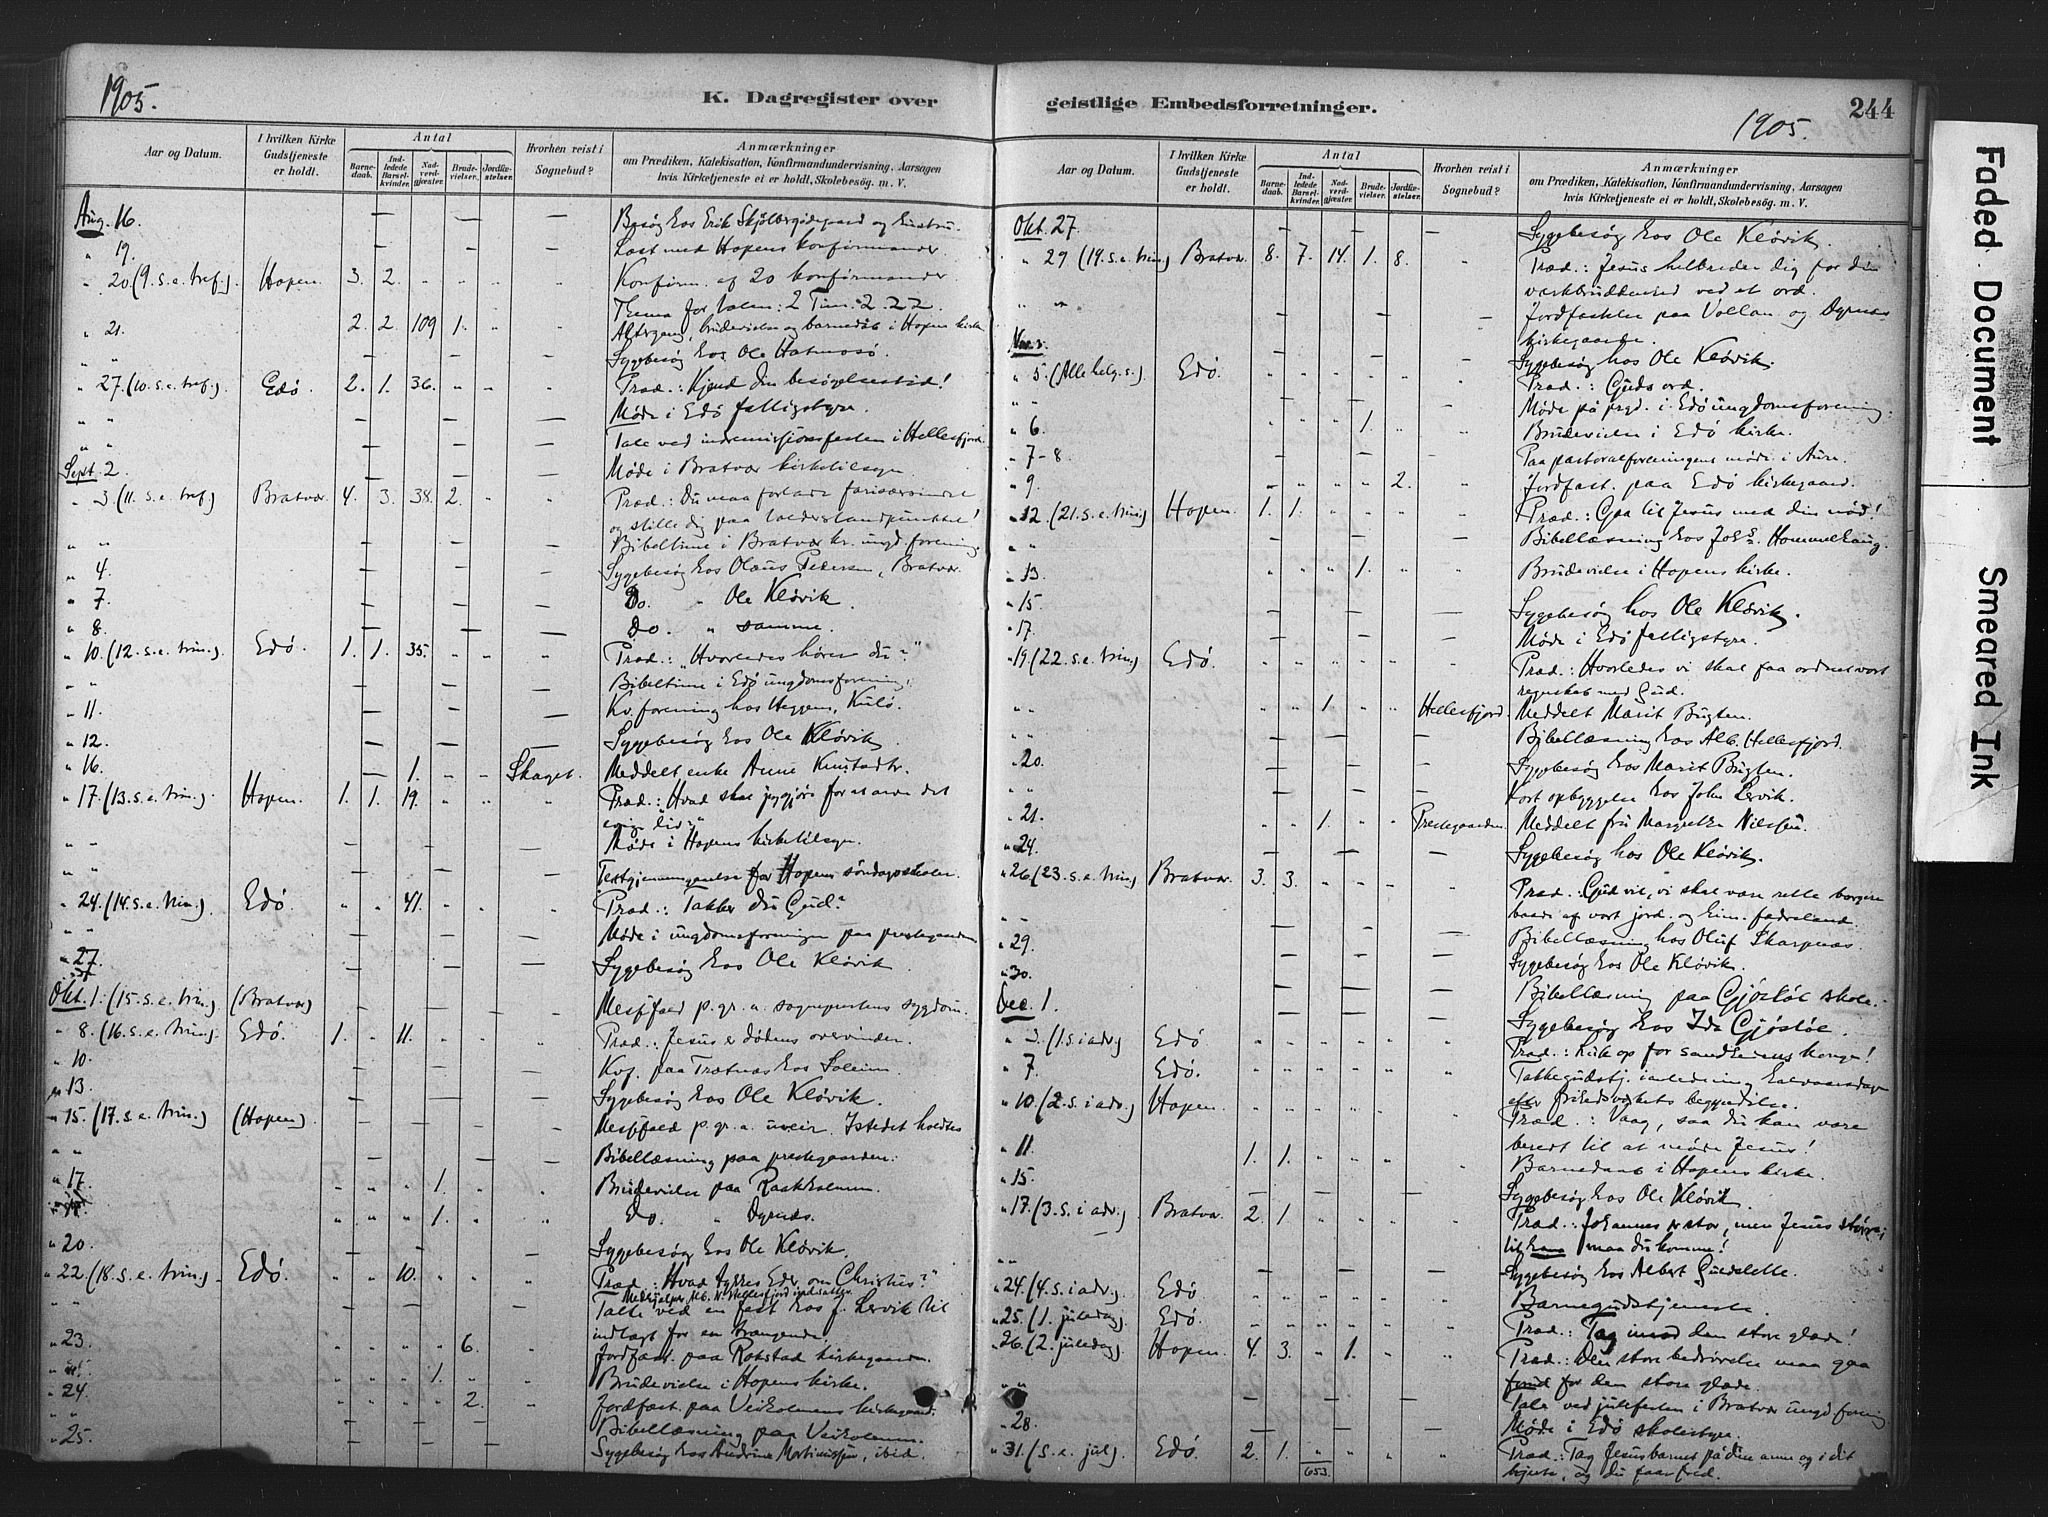 1905.
K. Dagregister over
Aar og Datum.
I hvilken Kirke Gudstjeneste er holdt.
Antal
Barnedaab.
Indledede Barselkvinder.
Nadverdgjæster.
Brudevielser.
Jordfæstelser.
Hvorhen reist i Sognebud?
Anmærkninger
om Prædiken, Katekisation, Konfirmandundervisning, Aarsagen
hvis Kirketjeneste ei er holdt, Skolebesøg. m. V.
Aug. 16. — — — Besøg hos Erik
" 19. — — — Læst med Hopens konfirmander
" 20. (9. s. e. tref.) Hopen. 3. 2. " " " " Konfirm. af 20 konfirmander
Thema for talen: 2 Tim. 2. 22.
" 21. 2. 2. 109 1. " " Altergang, brudevielse og barnedåb i Hopens kirke
" — — — Sygebesøg hos Ole
" 27. (10. s. e. tref.) Edö. 2. 1. 36. " " " Præd.: Kjend din besøgelsestid!
" " — — — Møde i Edö fattigstyre.
" " — — — Tale ved indremissionsfesten i Hellesfjord.
Sept. 2 — — — Møde i Bratvær kirketilsyn
" 3. (11. s. e. tref.) Bratvær. 4. 3. 38. 2. " " Præd.: Du maa forlade farisæersindet
og stille dig paa tolderstandpunktet!
" " — — — Bibeltime i Bratvær kr. ungd. forening.
" 4. — — — Sygebesøg hos Olaus Pedersen, Bratvær.
" 7. — — — Do. " Ole Kløvik.
" 8. — — — Do. " samme.
" 10. (12. s. e. trin.) Edö. 1. 1. 35. " " " Præd.: "Hvorledes hører du?"
" — — — Bibeltime i Edö ungdomsforening.
" 11. — — — Kv. forening hos Heggem, Kulö.
" 12. — — — Sygebesøg hos Ole Kløvik.
" 16. — 1. " " Skaget. Meddelt enke Anne
" 17. (13. s. e. trin.) Hopen. 1. 1. 19. " " " Præd.: Hvad skal jeg gjøre for at arve det
evige liv?
" " — — — Møde i Hopens kirketilsyn.
" " — — — Textgjennemgaaelse for Hopens søndagsskoler.
" 24. (14. s. e. trin.) Edö. " " 41. " " " Præd.: Takker du Gud?
" " — — — Møde i ungdomsforeningen paa prestegaarden.
" 27. — — — Sygebesøg hos Ole Kløvik.
Okt. 1. (15. s. e. trin.) (Bratvær) Messfald p. gr. a. sogneprestens sygdom.
" 8. (16. s. e. trin.) Edö. 1. " 11. " " " Præd.: Jesus er dødens overvinder.
" 10. — — — Kvf. paa Trætnæs hos Soleim.
" 13. — — — Sygebesøg hos Ole Kløvik.
" 15. (17. s. e. trin.) (Hopen) Messfald p. gr. a. uveir. Istedet holdtes
" " — — — Bibellæsning paa prestegaarden.
" 17. " " " 1. " " Brudevielse paa
" " " " 1. " " Do. " Dyrnæs.
" 20. — — — Sygebesøg hos Ole Kløvik.
" 22. (18. s. e. trin.) Edö. " " 10. " " " Præd.: "Hvad tykkes Eder om Christus?"
" " — — — Talte ved en fest hos J. Lervik til
indtægt for en trængende.
" 23. " " " " 6. " Jordfæst. paa Rokstad kirkegaarden.
" " " " 1. " " Brudevielse i Hopens kirke.
" 24. " " " " 2. " Jordfæst. paa Veiholmens kirkegaard.
" " — — — Bibellæsning paa Veiholmen.
" 25. — — — Sygebesøg hos Andrine Martinussen, ibid.
geistlige Embedsforretninger.
244
1905.
Aar og Datum.
I hvilken Kirke Gudstjeneste er holdt.
Antal
Barnedaab.
Indledede Barselkvinder.
Nadverdgjæster.
Brudevielser.
Jordfæstelser.
Hvorhen reist i Sognebud?
Anmærkninger
om Prædiken, Katekisation, Konfirmandundervisning, Aarsagen
hvis Kirketjeneste ei er holdt, Skolebesøg. m. V.
Okt. 27. — — — Sygebesøg hos Ole Kløvik.
" 29 (19. s. e. trin) Bratvær. 8. 7. 14. 1. 8. " Præd.: Jesus helbreder dig for din
værkbrudenhed ved et ord.
" " — — — Jordfæstelse paa Vollan og Dyrnæs
kirkegaarde.
Nov. 3. — — — Sygebesøg hos Ole Kløvik.
" 5. (Alle helg. s.) Edö. " " " " " " Præd.: Guds ord.
" " — — — Møde på prgd. i Edö ungdomsforening.
" 6. " " " 1. " " Brudevielse i Edö kirke.
" 7-8 — — — Paa pastoralforeningens møde i Aure.
" 9. " " " " 2. " Jordfæst. paa Edö kirkegaard.
" 12. (21. s. e. trin.) Hopen. 1. 1. " " " " Præd.: Gaa til Jesus med din nød!
" — — — Bibellæsning hos Johs. Hommelhaug.
" 13. " " " 1. " " Brudevielse i Hopens kirke.
" 15. — — — Sygebesøg hos Ole Kløvik.
" 17. — — — Møde i Edö fattigstyre.
" 19. (22. s. e. trin.) Edö. " " " " " " Præd.: Hvorledes vi skal faa ordnet vort
regnskab med Gud.
" " " " 1 " " Hellesfjord. Meddelt Marit Bugten.
" " — — — Bibellæsning hos Alb. Hellesfjord.
" 20. — — — Sygebesøg hos Marit Bugten.
" " — — — Kort opbyggelse hos John Lervik.
" 21. " " 1. " " Prestegaarden. Meddelt fru Margrethe Nilssen.
" 24. — — — Sygebesøg hos Ole Kløvik.
" 26. (23. s. e. trin) Bratvær. 3. 3. " " " " Præd.: Gud vil, vi skal være rette borgere
baade af vort jord. og him. fædreland.
" " — — — Bibellæsning hos Oluf Skarpnæs.
" 29. — — — Sygebesøg hos Ole Kløvik.
" 30. — — — Bibellæsning paa Gjøstöe skole.
Dec. 1. — — — Sygebesøg hos Ida Gjøstöe.
" 3. (1. s. i adv.) Edö. " " " " " " Præd.: Luk op for sandhedens konge!
" 7. Edö. " " " " " " Takkegudstj. i anledning halvaarsdagen
efter
" 10. (2. s. i adv.) Hopen. " " " " " " Præd.: Vaag, saa du kan være
beredt til at møde Jesus!
" 11. 1. 1. " " " " Barnedaab i Hopens kirke.
" 15. — — — Sygebesøg hos Ole Kløvik.
" 17. (3. s. i adv.) Bratvær. 2. 1. " " " " Præd.: Johannes er stor, men Jesus større;
til ham maa du komme!
" " — — — Sygebesøg hos Albert
" 24. (4. s. i adv.) Edö " " " " " " Barnegudstjeneste.
" 25. (1. juledag) Edö. " " " " " " Præd.: Tag imod den store glæde!
" 26. (2. juledag) Hopen. 4. 3. " 1. " " Præd.: Den store bedrøvelse maa gaa
forud for den store glæde.
" " — — — Tale ved julefesten i Bratvær ungd. forening
" 28. — — — Møde i Edö skolestyre.
" 31. (S. e. jul) Edö. 2. 1. " " " " Præd.: Tag Jesusbarnet på dine arme og i dit
hjerte, og du faar fred.
653.
Faded Document
Smeared Ink